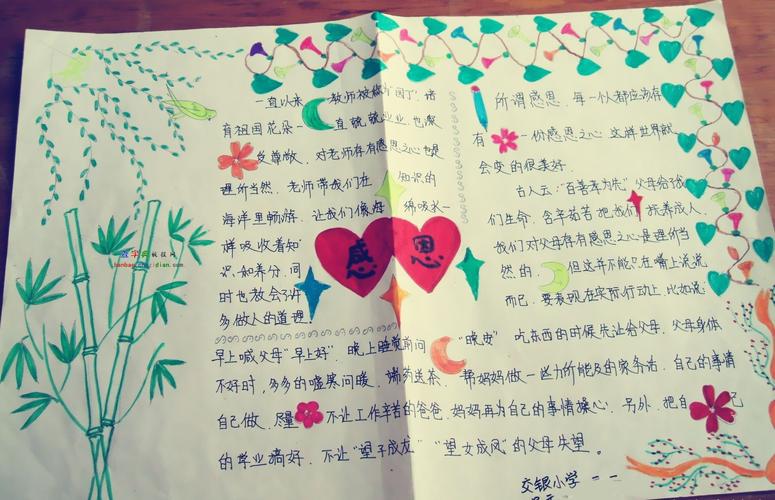 一直以来 教师被称"园丁",培
育祖国花朵一直兢兢业业,也深
受尊敬,对老师存有感恩之心也是
理所当然,老师带我们在 知识的
海洋里畅游,让我们像海绵吸水一
样吸收着知
识,知养分,同
时也教会了许
多做人的道理。
感恩
所谓感恩,每一个人都应该存
有 一份感恩之心,这样世界就
会变的很美好.
古人云:"百善孝为先"父母给了我
们生命,含辛茹苦把我们抚养成人,
我们对父母存有感恩之心是理所当
然的, 但这并不能只在嘴上说说
而已,要表现在实际行动上,比如说:
早上喊父母"早上好",晚上睡觉前问 "晚安" 吃东西的时候先让给父母,父母身体
不好时,多多的嘘寒问暖、端药送茶,帮妈妈做一些力所能及的家务活,自己的事情
自己做,尽量 不让工作辛苦的爸爸、妈妈再为自己的事情操心,另外,把自己
的学业搞好,不让"望子成龙""望女成凤"的父母失望。
交银小学 一一